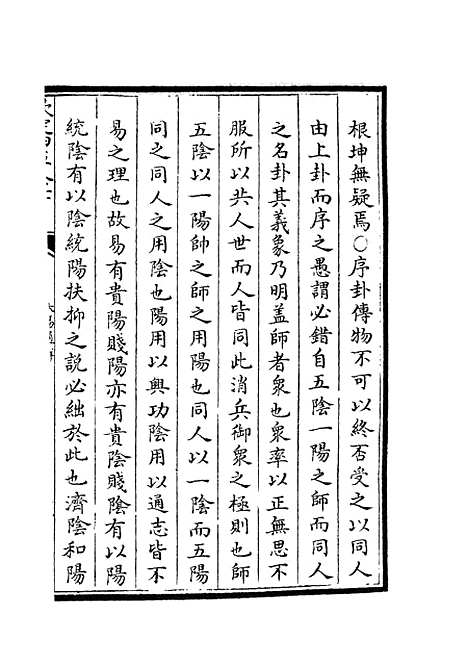 根坤無疑焉○序卦傳物不可以終否受之以同人
由上卦而序之愚謂必錯自五陰一陽之師而同人
之名卦其義象乃明盖師者衆也衆率以正無思不
服所以共人世而人皆同此消兵御衆之極則也師
五陰以一陽帥之師之用陽也同人以一陰而五陽
同之同人之用陰也陽用以興功陰用以通志皆不
易之理也故易有貴陽賤陽亦有貴陰賤陰有以陽
統陰有以陰統陽扶抑之說必絀於此也濟陰和陽